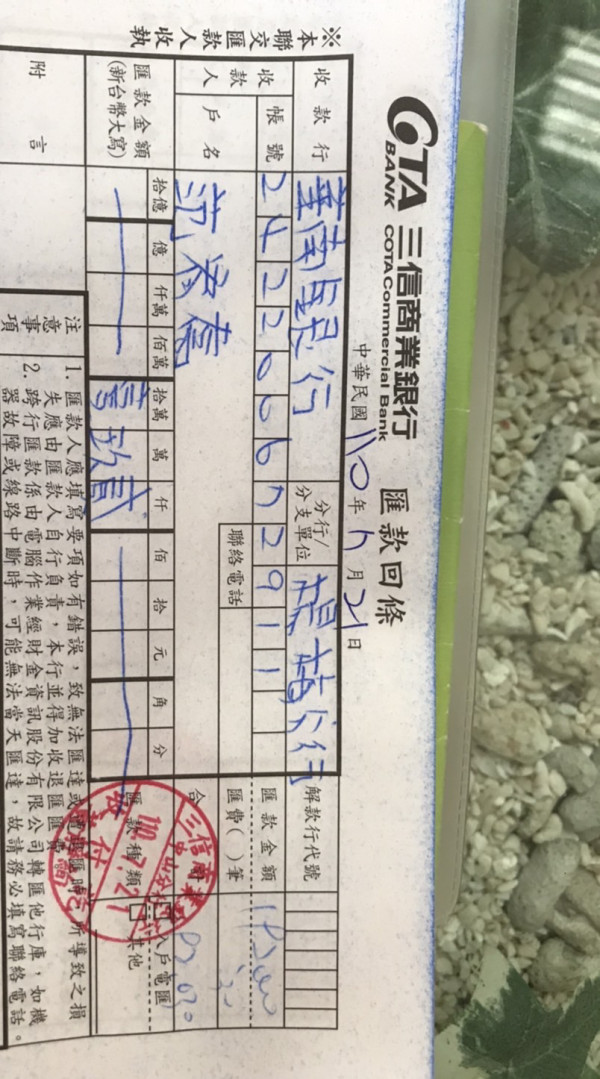 COTA BANK 三信商業銀行
COTA Commercial Bank
匯款回條
中華民國 110 年 7 月 21 日
※本聯交匯款人收執
收款行 華南銀行 分行/分支單位 分行 解款行代號
收款人
帳號 242200672911
戶名
聯絡電話
匯款金額
(新台幣大寫)
拾億 億 仟萬 佰萬 拾萬 萬 仟 佰 拾 元 角 分
匯款金額
匯費( )筆 30
合
匯款種類 入戶電匯 其他
附言
注意事項
1. 匯款人應填寫要項如有錯誤，致無法匯達或
失應由匯款人自行負責，本行並得加收退匯
所導致之損
2. 跨行匯款係由電腦作業經財金資訊股份有限公司轉匯他行庫，如機
器故障或線路中斷時，可能無法當天匯達，故請務必填寫聯絡電話。
三信商業
110.7.21